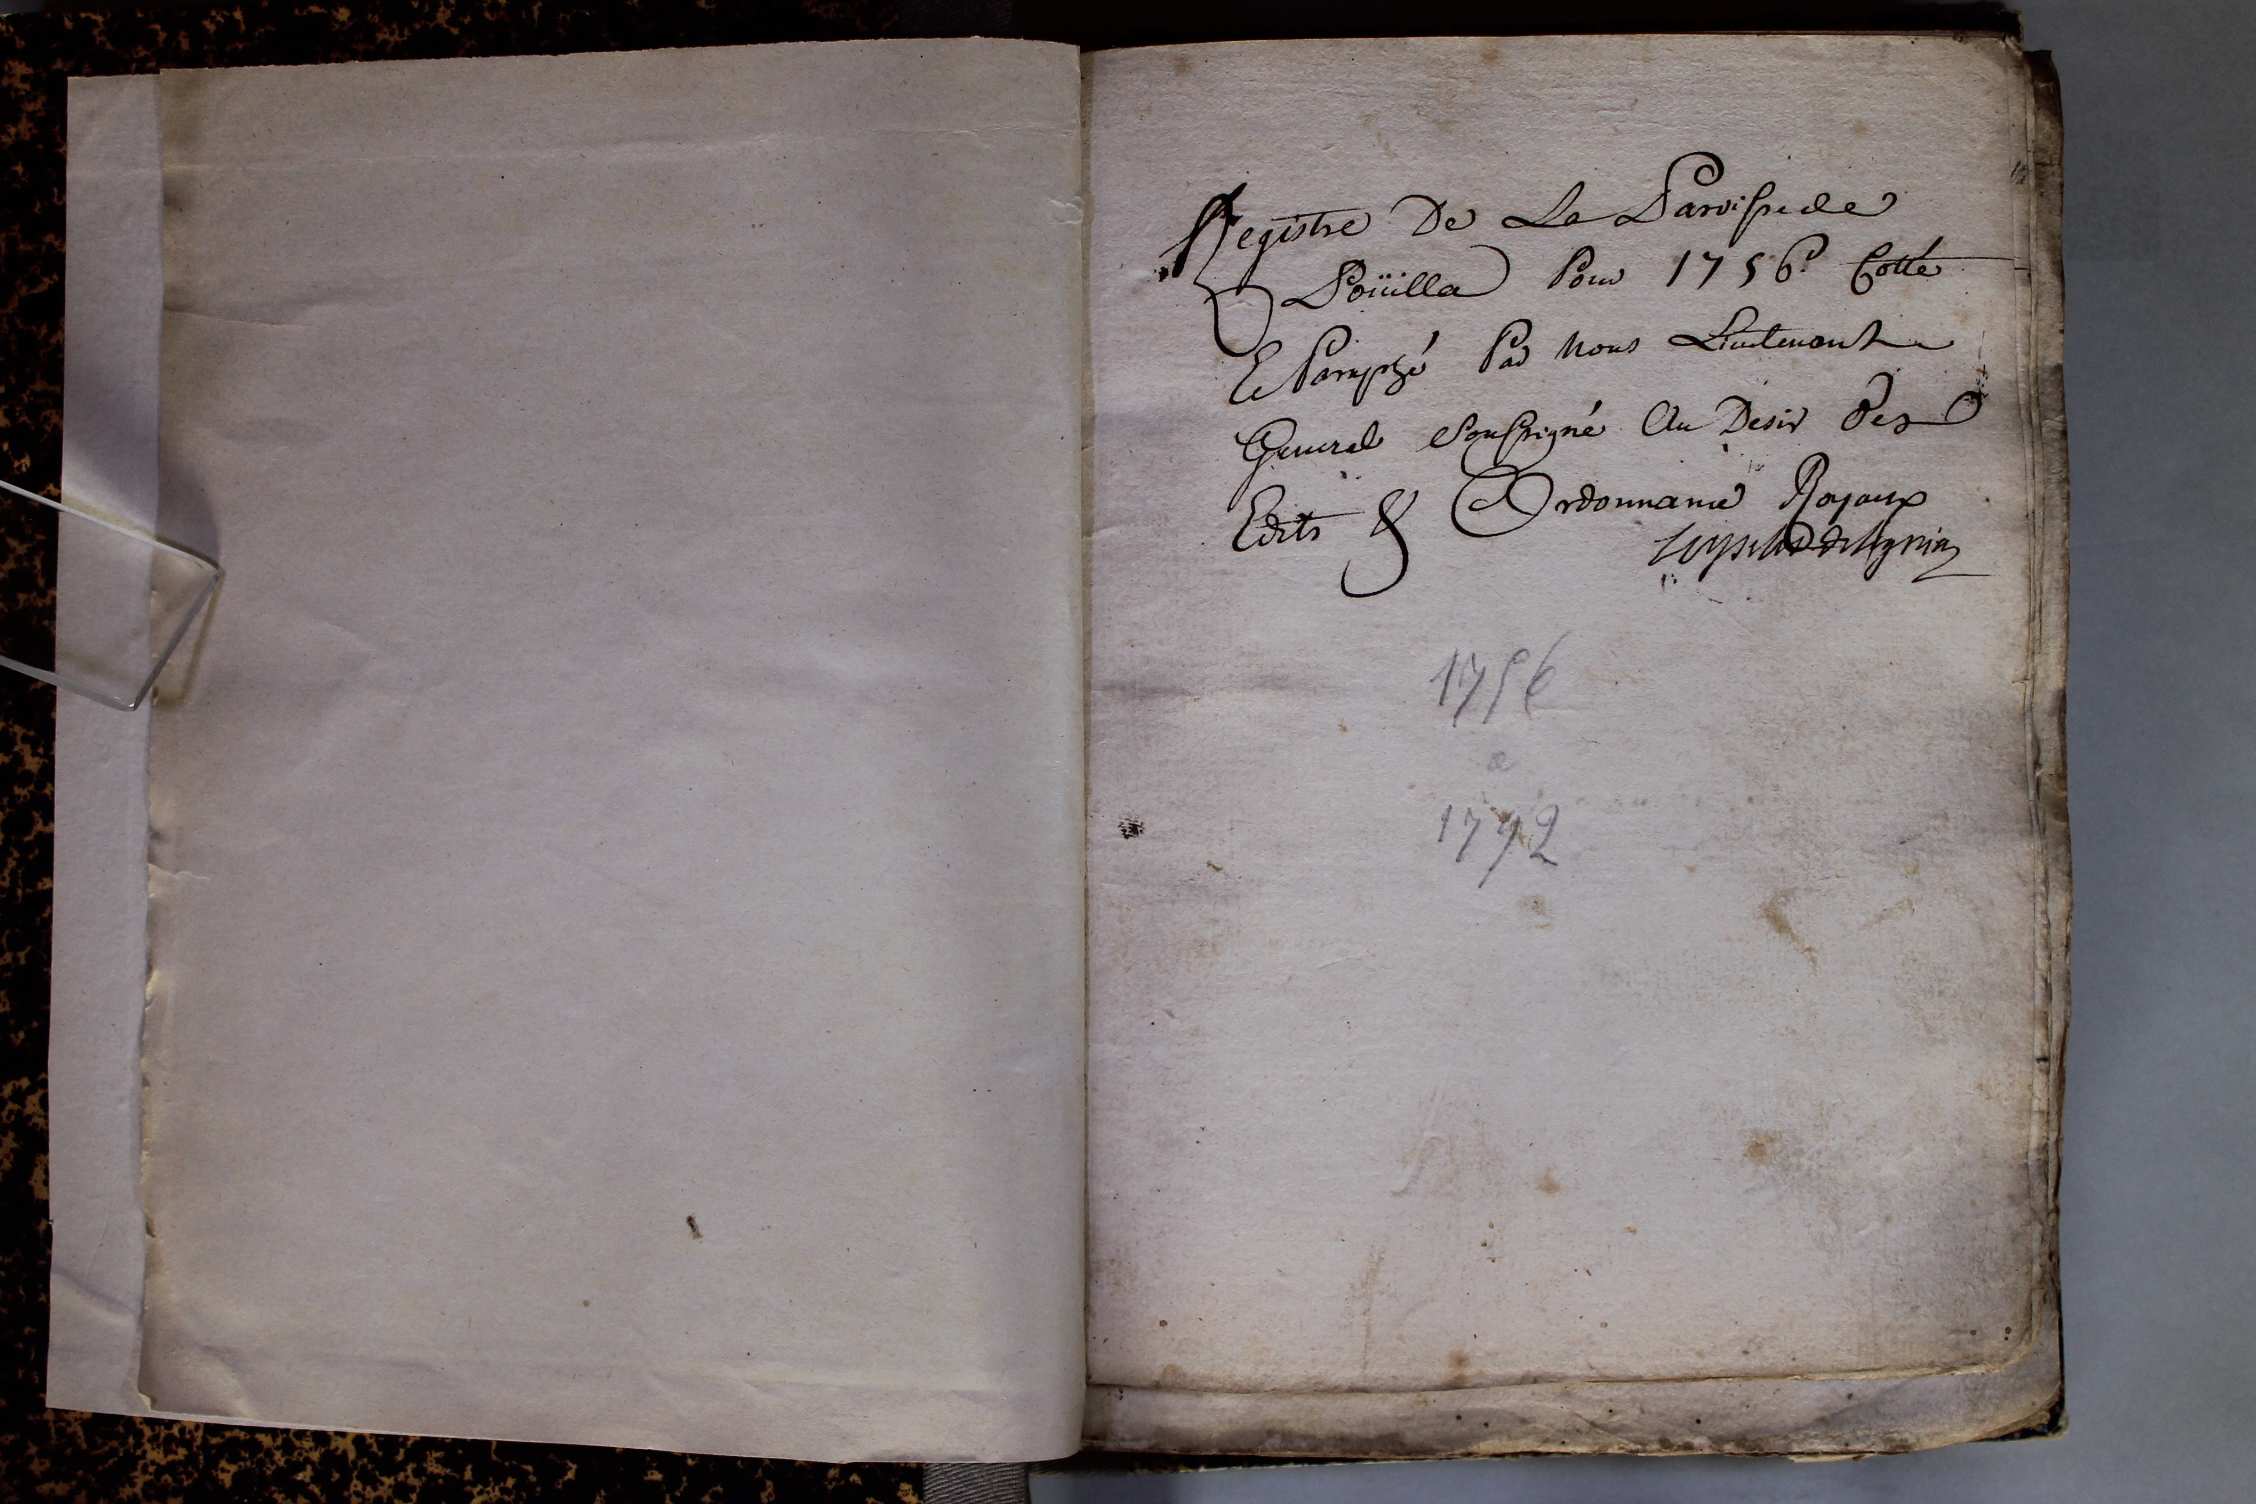 Registre De La Paroisse de
Poüilla Pour 1756 Cotté
Et Paraphé Par Nous Lieutenant
General Soussigné Au Desir Des
Edits & Ordonnance Royaux
1756
a
1792